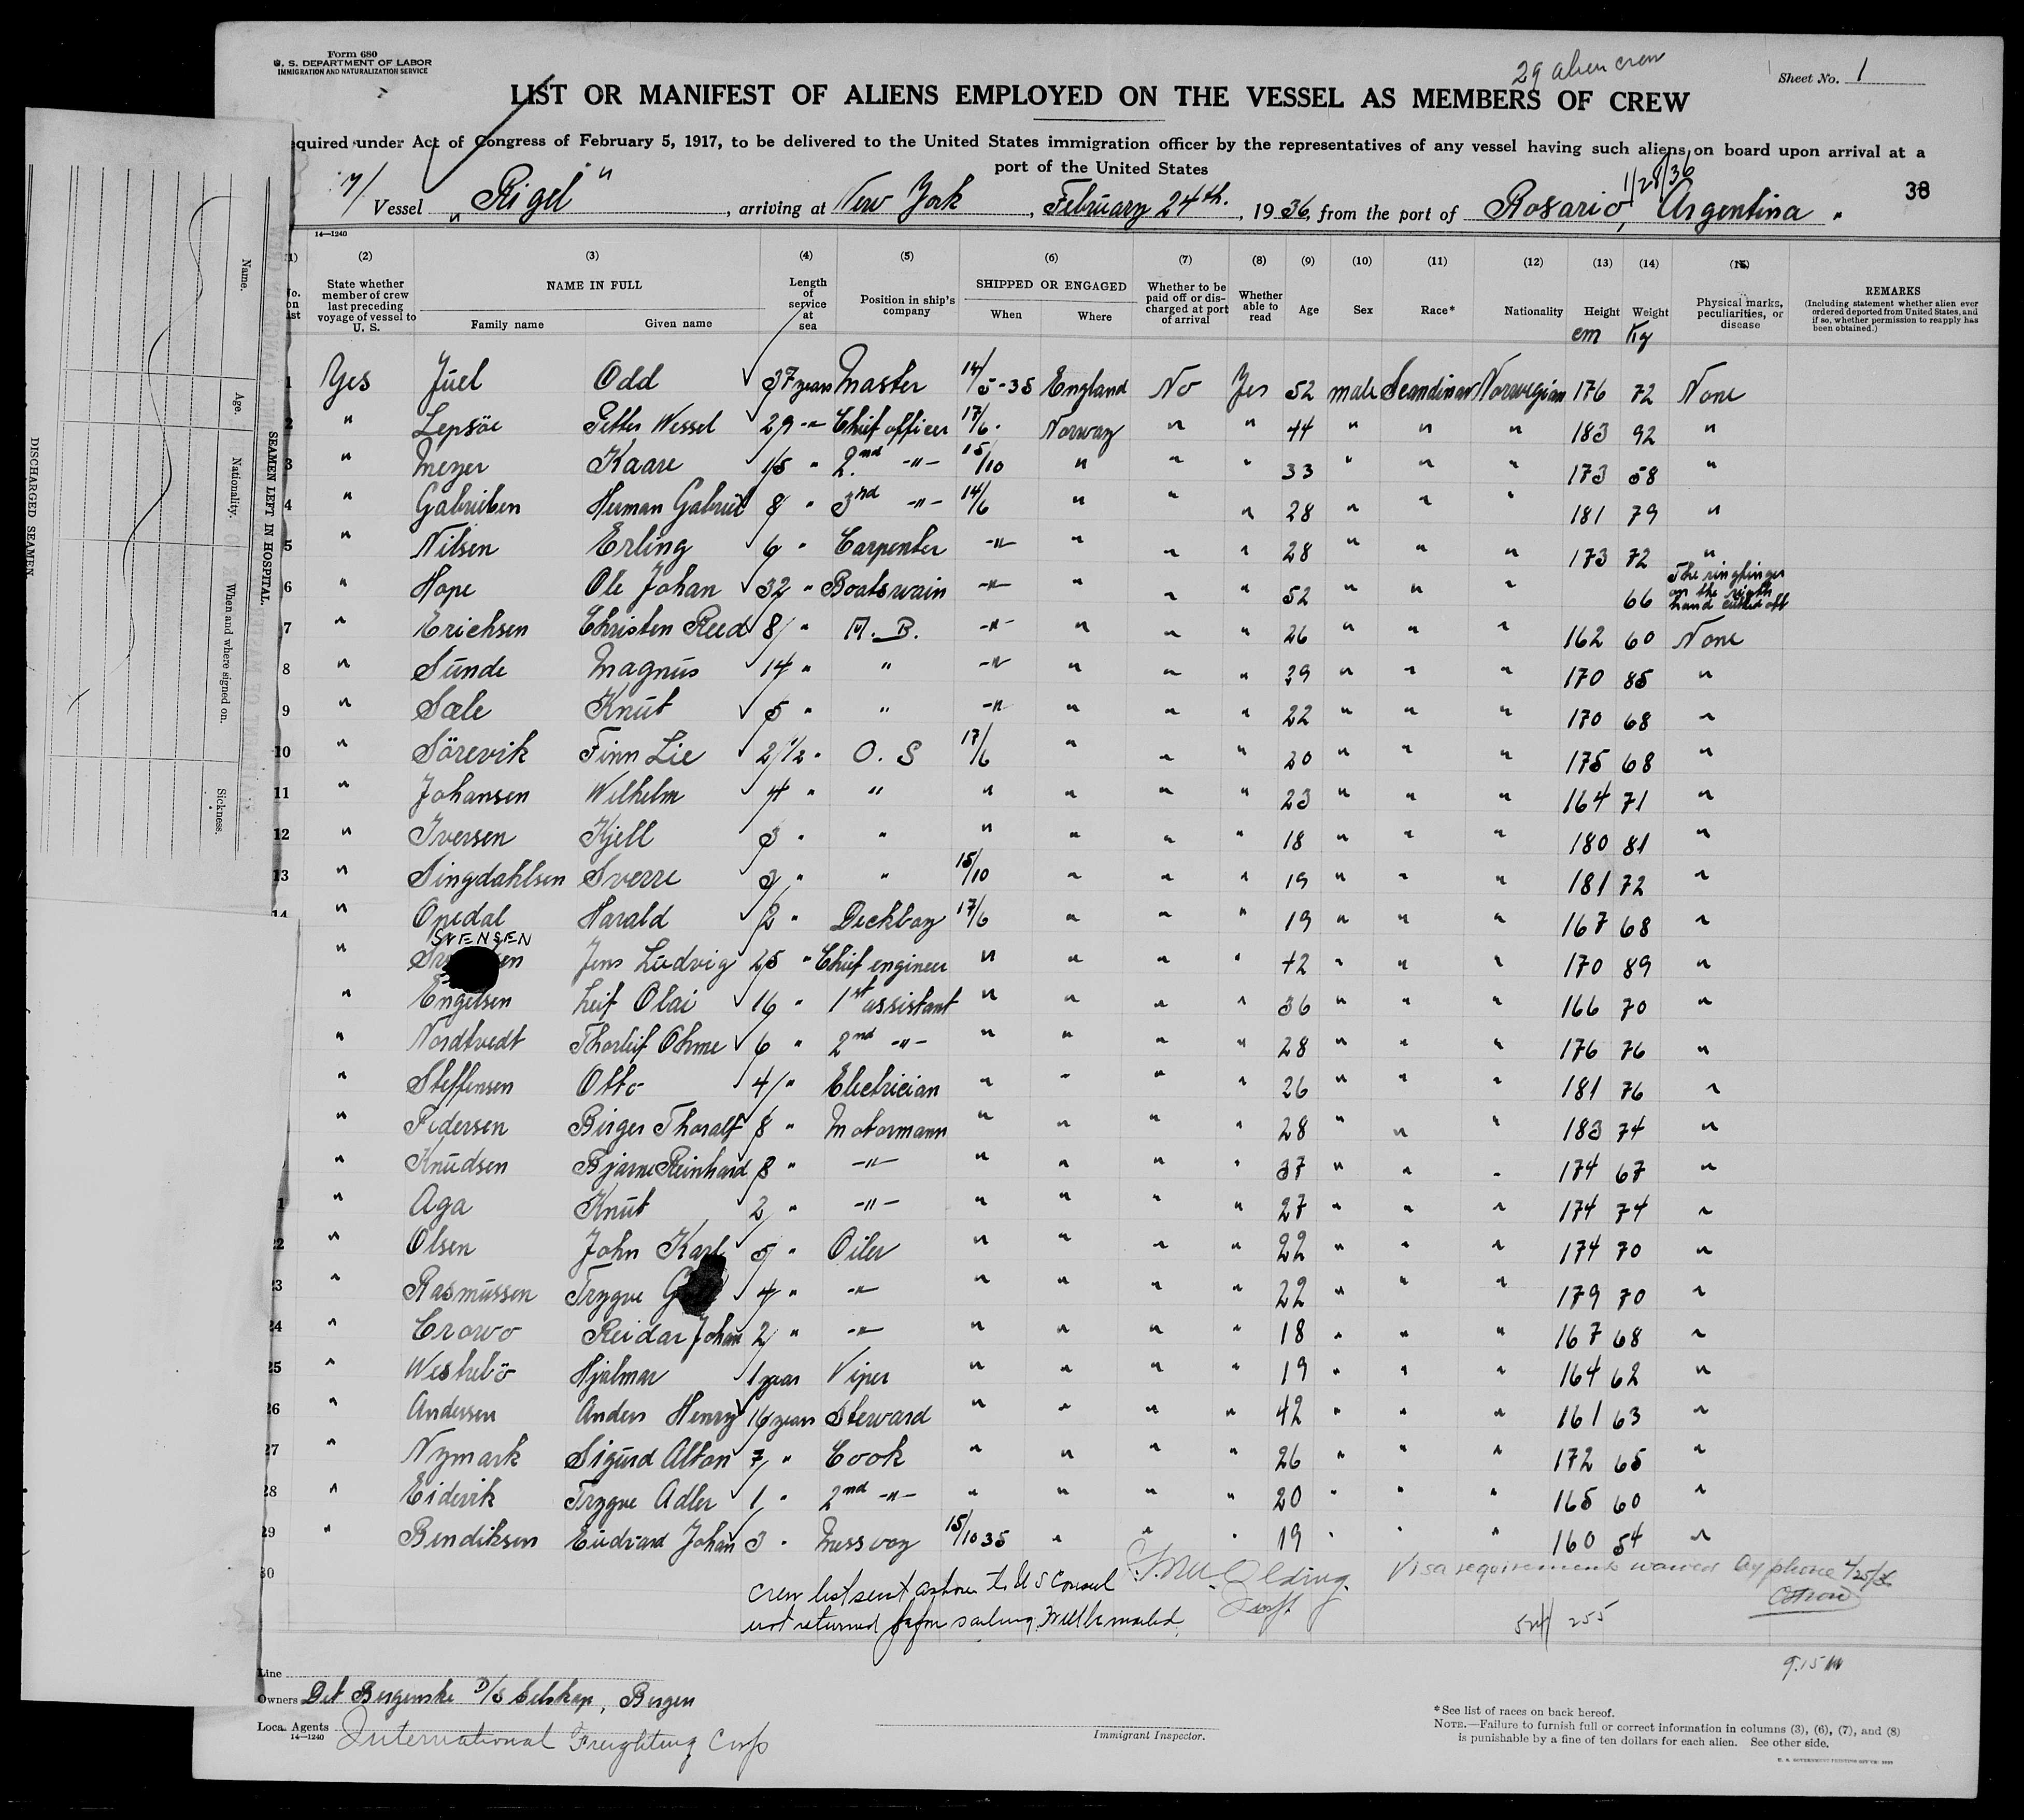 Form 680
U. S. DEPARTMENT OF LABOR
IMMIGRATION AND NATURALIZATION SERVICE
29 alien crew
Sheet No. 1
LIST OR MANIFEST OF ALIENS EMPLOYED ON THE VESSEL AS MEMBERS OF CREW
equired under Act of Congress of February 5, 1917, to be delivered to the United States immigration officer by the representatives of any vessel having such aliens on board upon arrival at a
port of the United States
1/28/36
38
Vessel "Rigel", arriving at New York, February 24th., 1936, from the port of Rosario, Argentina.
14—1240
(2) (3) (4) (5) (6) (7) (8) (9) (10) (11) (12) (13) (14) (15)
State whether member of crew last preceding voyage of vessel to U. S.
NAME IN FULL
Family name Given name
Length of service at sea
Position in ship's company
SHIPPED OR ENGAGED
When Where
Whether to be paid off or discharged at port of arrival
Whether able to read
Age Sex Race* Nationality Height Weight
cm Kg
Physical marks, peculiarities, or disease
REMARKS
(Including statement whether alien ever ordered deported from United States, and if so, whether permission to reapply has been obtained.)
1 Yes Juel Odd 37 years Master 14/5-35 England No Yes 52 male Scandinav Norwegian 176 72 None
2 " Lepsöe Petter Wessel 29 -"- Chief officer 17/6. Norway " " 44 " " " 183 92 "
3 " Meyer Kaare 15 " 2nd -"- 15/10 " " " 33 " " " 173 58 "
4 " Gabrielsen Herman Gabriel 8 " 3rd -"- 14/6 " " " 28 " " " 181 79 "
5 " Nilsen Erling 6 " Carpenter -"- " " " 28 " " " 173 72 "
6 " Hope Ole Johan 32 " Boatswain -"- " " " 52 " " " 66 The ringfinger on the right hand cutted off
7 " Erichsen Christen Reed 8 " A. B. -"- " " " 26 " " " 162 60 None
8 " Sunde Magnus 14 " " -"- " " " 29 " " " 170 85 "
9 " Sæle Knut 5 " " -"- " " " 22 " " " 170 68 "
10 " Sörevik Finn Lie 2 1/2 " O. S 17/6 " " " 20 " " " 175 68 "
11 " Johansen Wilhelm 4 " " " " " " 23 " " " 164 71 "
12 " Iversen Kjell 3 " " " " " " 18 " " " 180 81 "
13 " Singdahlsen Sverre 3 " " 15/10 " " " 19 " " " 181 72 "
14 " Onedal Harald 2 " Deckboy 17/6 " " " 19 " " " 167 68 "
SVENSEN
" Jens Ludvig 25 " Chief engineer " " " " 42 " " " 170 89 "
" Engelsen Leif Olai 16 " 1st assistant " " " " 36 " " " 166 70 "
" Nordtvedt Thorleif Ohme 6 " 2nd -"- " " " " 28 " " " 176 76 "
" Steffensen Otto 4 " Electrician " " " " 26 " " " 181 76 "
" Pedersen Birger Thoralf 8 " Motormann " " " " 28 " " " 183 74 "
" Knudsen Bjarne Reinhard 8 " -"- " " " " 37 " " " 174 67 "
1 " Aga Knut 2 " -"- " " " " 27 " " " 174 74 "
22 " Olsen John Karl 5 " Oiler " " " " 22 " " " 174 70 "
23 " Rasmussen Trygve 4 " -"- " " " " 22 " " " 179 70 "
24 " Crowo Reidar Johan 2 " -"- " " " " 18 " " " 167 68 "
25 " Westrebö Hjalmar 1 year Viper " " " " 19 " " " 164 62 "
26 " Andersen Anders Henry 16 years Steward " " " " 42 " " " 161 63 "
27 " Nymark Sigurd Alton 7 " Cook " " " " 26 " " " 172 65 "
28 " Eidevik Trygve Adler 1 " 2nd -"- " " " " 20 " " " 165 60 "
29 " Bendiksen Eudvard Johan 3 " Messboy 15/10 35 " " " 19 " " " 160 54 "
30
Visa requirements waived by phone
crew list sent ashore to US Consul
not returned before sailing. Will be mailed.
255
9.15 AM
Line
Owners Det Bergenske D/S Selskap, Bergen
Loca. Agents International Freighting Corp
14—1240
Immigrant Inspector.
*See list of races on back hereof.
NOTE.—Failure to furnish full or correct information in columns (3), (6), (7), and (8)
is punishable by a fine of ten dollars for each alien. See other side.
DISCHARGED SEAMEN
SEAMEN LEFT IN HOSPITAL.
Name.
Age.
Nationality.
When and where signed on.
Sickness.